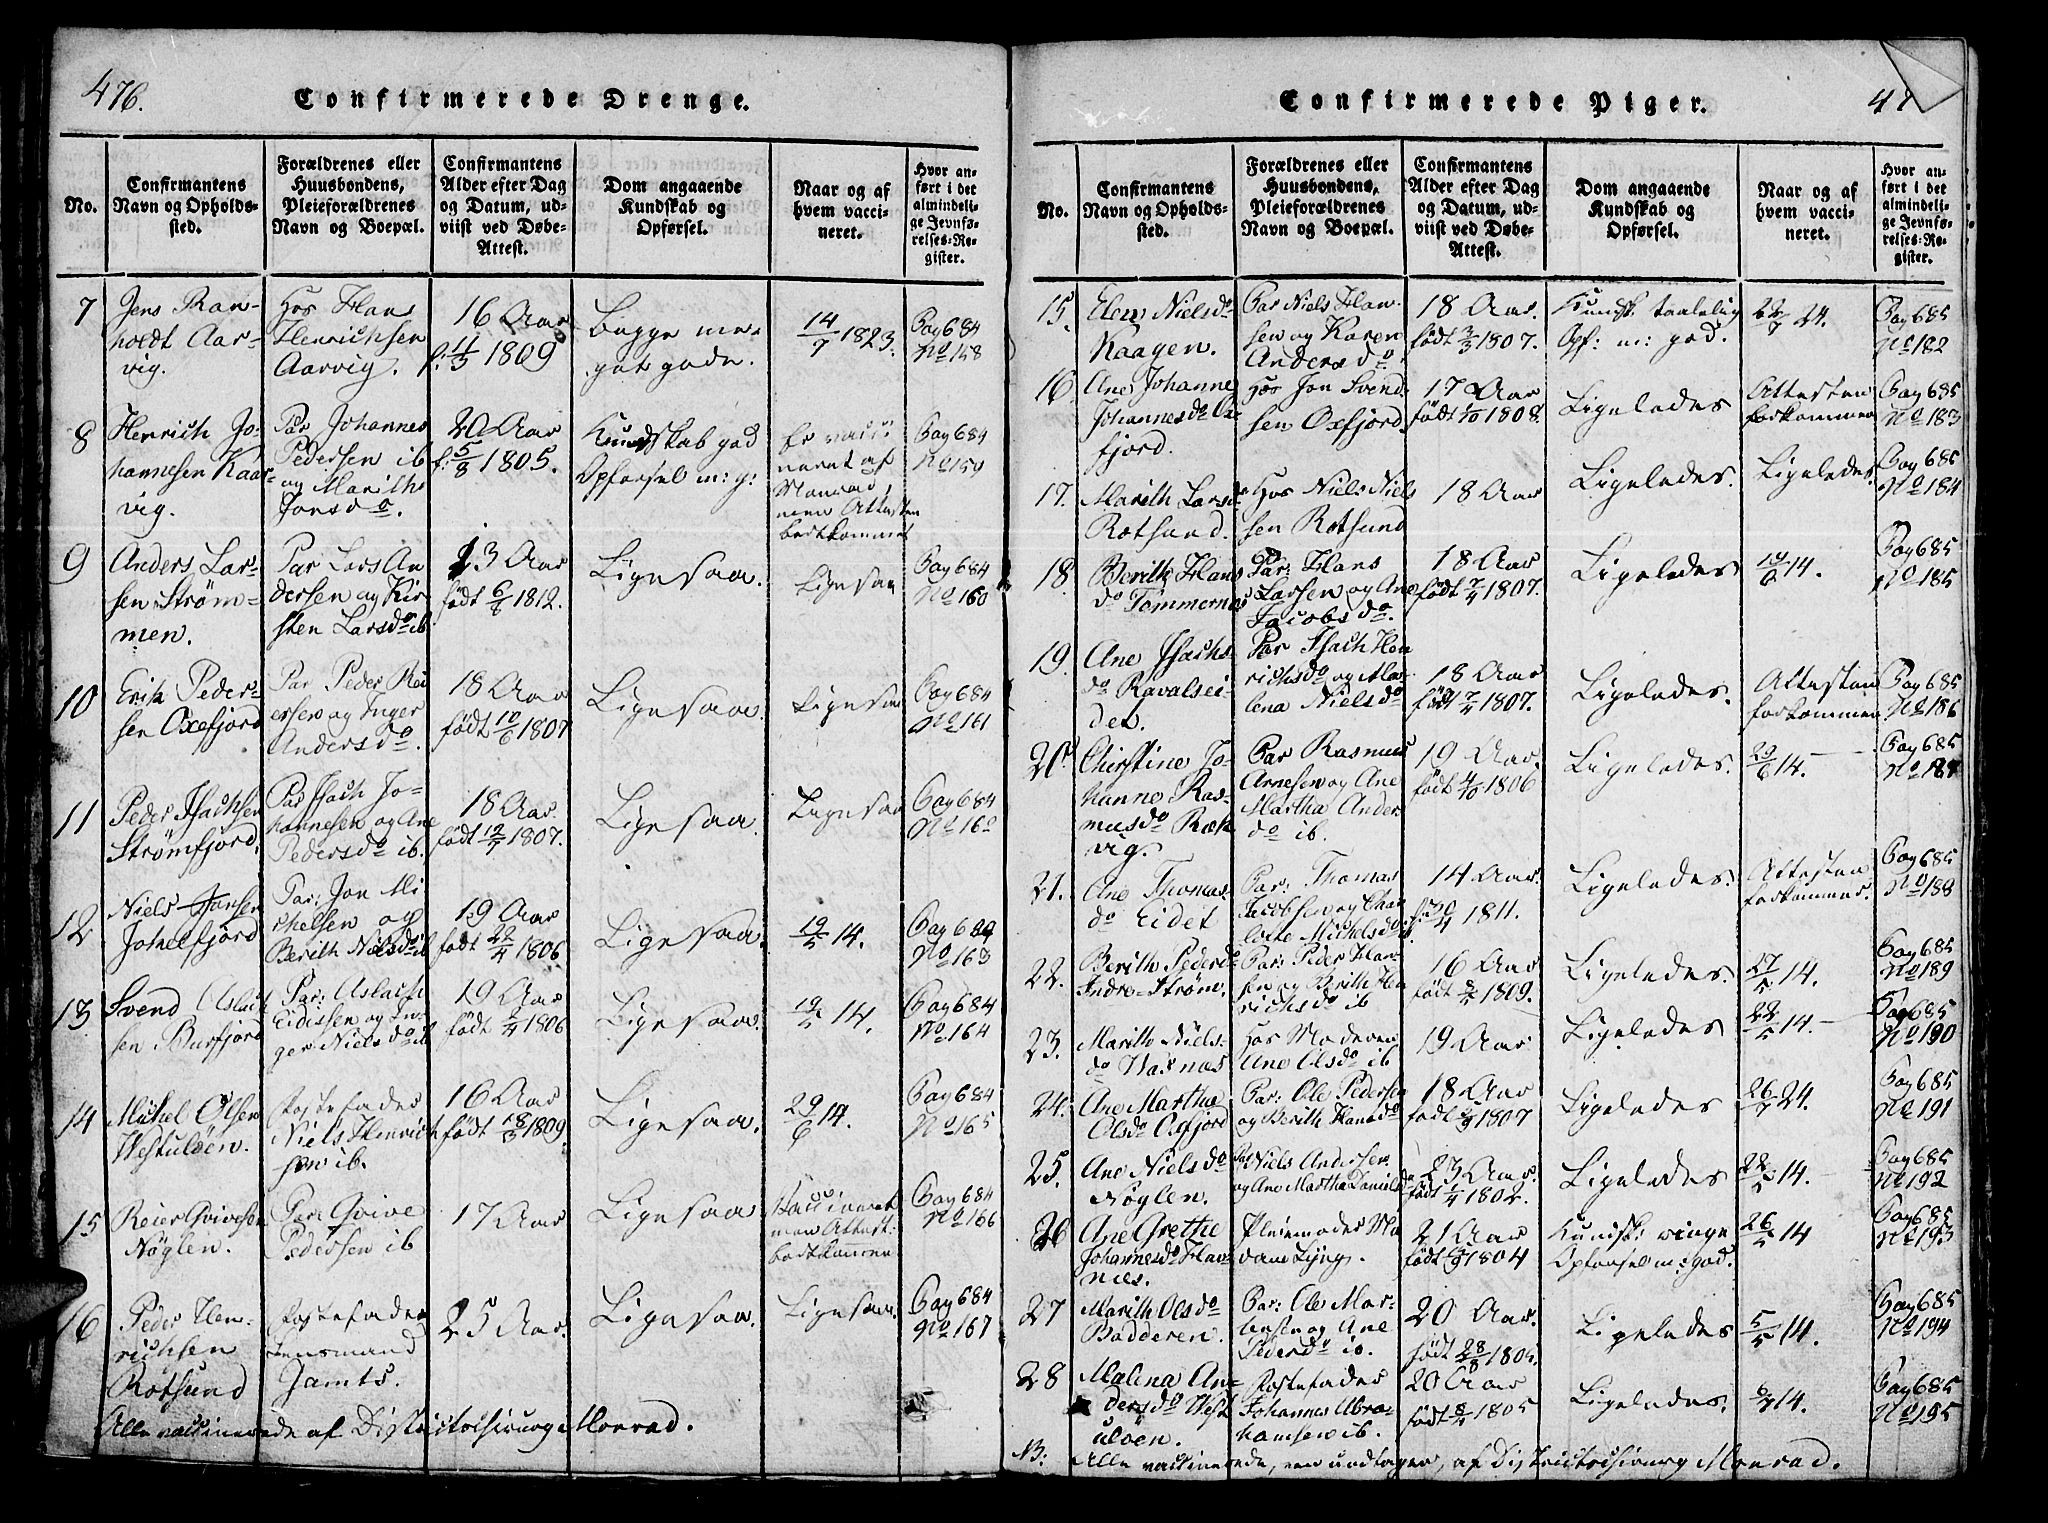 476.
Confirmerede Drenge.
No.
Confirmantens Navn og Opholds-sted.
Forældrenes eller Huusbondens, Pleieforældrenes Navn og Boepæl.
Confirmantens Alder efter Dag og Datum, ud-viist ved Døbe-Attest.
Dom angaaende Kundskab og Opførsel.
Naar og af hvem vacci-neret.
Hvor an-ført i det almindeli-ge Jevnfø-relses-Re-gister.
7 Jens Ran-holdt Aar-vig. Hos Hans Henrichsen Aarvig. 16 Aar f: 11/3 1809 begge me-get gode. 14/7 1823. Pag 684 No 158
8 Henrich Jo-hannesen Kaar-vig. Par Johannes Pedersen ib og Marith Jonsdo. 20 Aar f: 5/8 1805. Kundskab god Opførsel m: g: Er vacci-neret af Monrad, men Attesten bortkommet Pag 684 No 159
9 Anders Lar-sen Strøm-men. Par Lars An dersen og Kir sten Larsdo ib 13 Aar født 6/6 1812. Ligesaa. Ligesaa Pag 684 No 160
10 Erich Peder-sen Oxefjord Par Peder Rei ersen og Inger Andersdo. 18 Aar født 10/6 1807 Ligesaa. Ligesaa Pag 684 No 161
11 Peder Isachsen Strømfjord. Par Isach Jo-hannesen og Ane Pedersdo ib. 18 Aar født 12/5 1807. Ligesaa. Ligesaa Pag 684 No 162
12 Niels Jonsen Jokelfjord Par: Jon Mi chelsen og Berith Nielsdo ib 19 Aar født 22/4 1806 Ligesaa. 19/5 14. Pag 684 No 163
13 Svend Aslach sen Burfjord Par: Aslach Eidissen og In-ger Nielsdo ib 19 Aar født 2/4 1806 Ligesaa. 19/5 14. Pag 684 No 164
14 Michel Olsen Westuløen. Fostefader Niels Henrich sen ib. 16 Aar født 18/3 1809. Ligesaa. 29/6 14. Pag 684 No 165
15 Reier Qvivesen Nøglen. Par: Qvive Pedersen ib 17 Aar Ligesaa Vaccineret men Attest. bortkommen Pag 684 No 166
16 Peder Hen-richsen Rotsund Fostefader Lensmand Jamts. 25 Aar. Ligesaa. Ligesaa. Pag 684 No 167
Alle vaccinerede af Districtschirurg Monrad.
47
Confirmerede Piger.
No.
Confirmantens Navn og Opholds-sted.
Forældrenes eller Huusbondens, Pleieforældrenes Navn og Boepæl.
Confirmantens Alder efter Dag og Datum, ud-viist ved Døbe-Attest.
Dom angaaende Kundskab og Opførsel.
Naar og af hvem vacci-neret.
Hvor an-ført i det almindeli-ge Jevnfø-relses-Re-gister.
15. Elen Nielsdo Kaagen. Par Niels Han-sen og Karen Andersdo 18 Aar. født 3/3 1807. Kundsk taalelig Opf: m: god. 22/7 24. Pag 685 No 182
16. Ane Johanne Johannesdo Ox-fjord. Hos Jon Svend-sen Oxfjord. 17 Aar født 1808. Ligeledes Attesten forkommen Pag 685 No 183
17. Marith Larsdo Rotsund. Hos Niels Niel sen Rotsund 18 Aar Ligeledes. Ligeledes. Pag 685 No 184
18. Berith Hans do Tømmernæs Par: Hans Larsen og Ane Jacobsdo. 18 Aar født 7/4 1807. Ligeledes 19/6 14. Pag 685 No 185
19. Ane Isachs-do Ravalsei-det. Par Isach Hen richsdo og Ma-lena Nielsdo 18 Aar født 7/4 1807. Ligeledes. Attesten forkommen Pag 685 No 186
20 Christine Jo-hanne Ras-musdo Ræk vig. Par Rasmus Arnesen og Ane Martha Anders do ib. 19 Aar. født 4/10 1806 Ligeledes. 29/6 14. Pag 685 No 187
21. Ane Thomas-do Eidet Par: Thomas Jacobsen og Char lotte Michelsdo ib 14 Aar. f: 30/4 1811. Ligeledes. Attesten forkommen. Pag 685 No 188
22. Berith Pedersdo Indre-Strøm. Par: Peder Han-sen og Berith Hen richsdo ib 16 Aar født 1809. Ligeledes. 27/5 14. Pag 685 No 189
23. Marith Niels-do Warnæs Hos Moderen Ane Olsdo ib 19 Aar. Ligeledes 22/5 14. Pag 685 No 190
24. Ane Martha Olsdo Oxfjord Par: Ole Pedersen og Berith Hansdo 18 Aar født 1807 Ligeledes 26/7 24. Pag 685 No 191
25. Ane Nielsdo Nøglen. Par Niels Andersen og Ane Martha Daniels do 23 Aar. født 1/4 1802. Ligeledes. 22/5 14. Pag 685 No 192
26 Ane Grethe Johannesdo Hav-næs. Pleiemoder Ma vane Lyng. 21 Aar født 1804 Kundsk: ringe Opførsel m: god. 26/5 14 Pag 685 No 193
27 Marith Olsdo Badderen. Par: Ole Mor-tensen og Ane Pedersdo ib. 20 Aar. født 28/8 1805. Ligeledes 5/5 14. Pag 685 No 194
28 Malena An-dersdo West uløen. Fostefader Johannes Abra hamsen ib. 20 Aar født 8/4 1805 Ligeledes. 14. Pag 685 No 195
NB: Alle vaccinerede, een undtagen, af Districtschirurg Monrad.